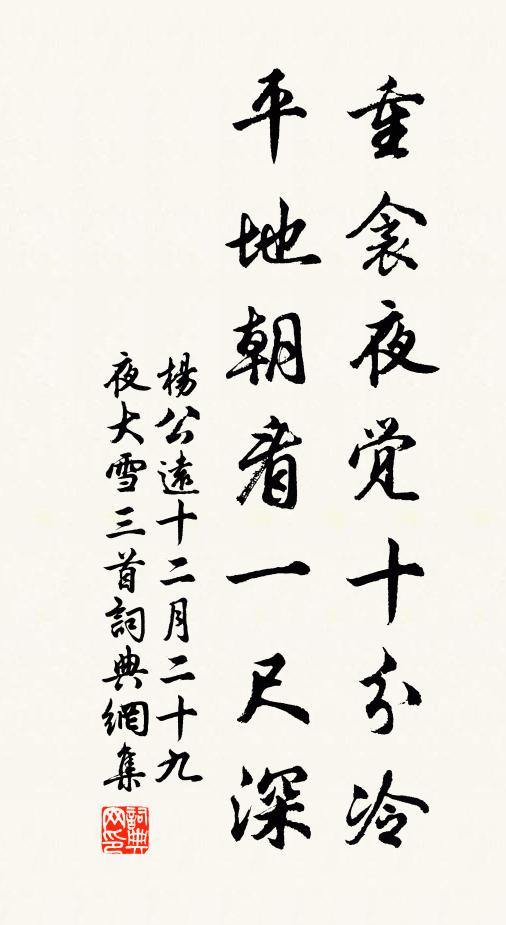 重衾夜觉十分冷
平地朝看一尺深
楊公遠十二月二十九
夜大雪三首詞典網集
詞典网印